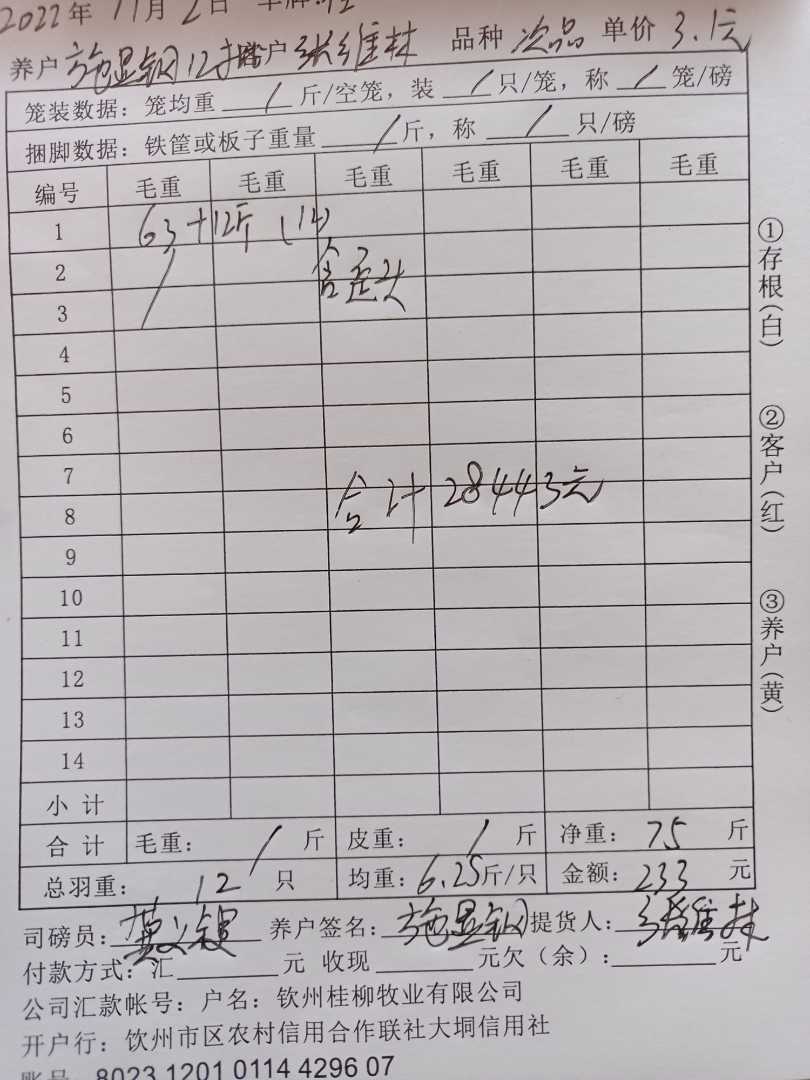 2022年 11月 2日 车牌
养户 施显钢 12 户 张维林 品种 次品 单价 3.1元
笼装数据：笼均重 / 斤/空笼，装 / 只/笼，称 / 笼/磅
捆脚数据：铁筐或板子重量 / 斤，称 / 只/磅
编号 毛重 毛重 毛重 毛重 毛重 毛重
1 63+12斤 (1只)
2 / 含歪头
3
4
5
6
7
8 合计 28443元
9
10
11
12
13
14
小计
合计 毛重： / 斤 皮重： / 斤 净重： 75 斤
总羽重： 12 只 均重：6.25斤/只 金额：233 元
司磅员： 养户签名：施显钢 提货人：张维林
付款方式：汇 元 收现 元欠（余）： 元
公司汇款帐号：户名：钦州桂柳牧业有限公司
开户行：钦州市区农村信用合作联社大垌信用社
账号：8023 1201 0114 4296 07
①存根(白)
②客户(红)
③养户(黄)